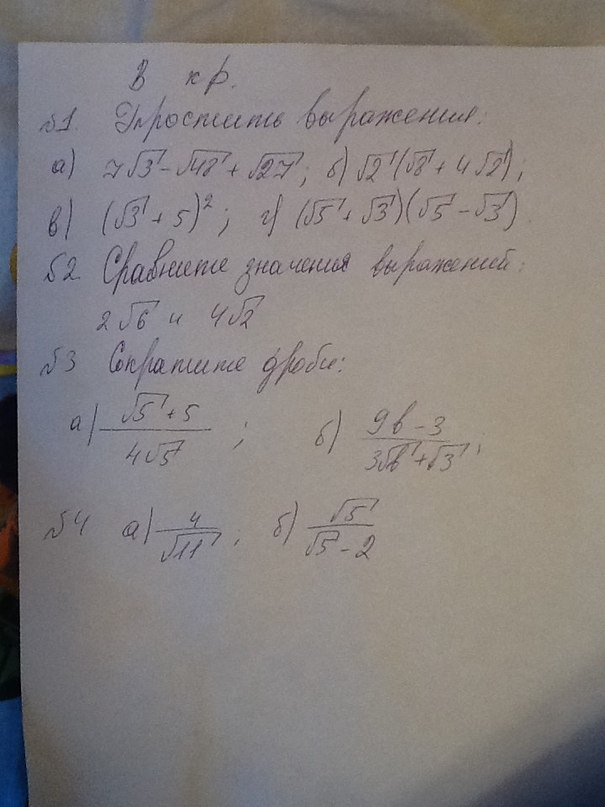 В кр.
№1. Упростить выражения:
а) 7√3 - √48 + √27; б) √2(√8 + 4√2);
в) (√3 + 5)²; г) (√5 + √3)(√5 - √3).
№2 Сравните значения выражений:
2√6 и 4√2
№3 Сократите дроби:
а) (√5 + 5)/(4√5); б) (9b - 3)/(3√b + √3),
№4 а) 4/√11; б) √5/(√5 - 2)